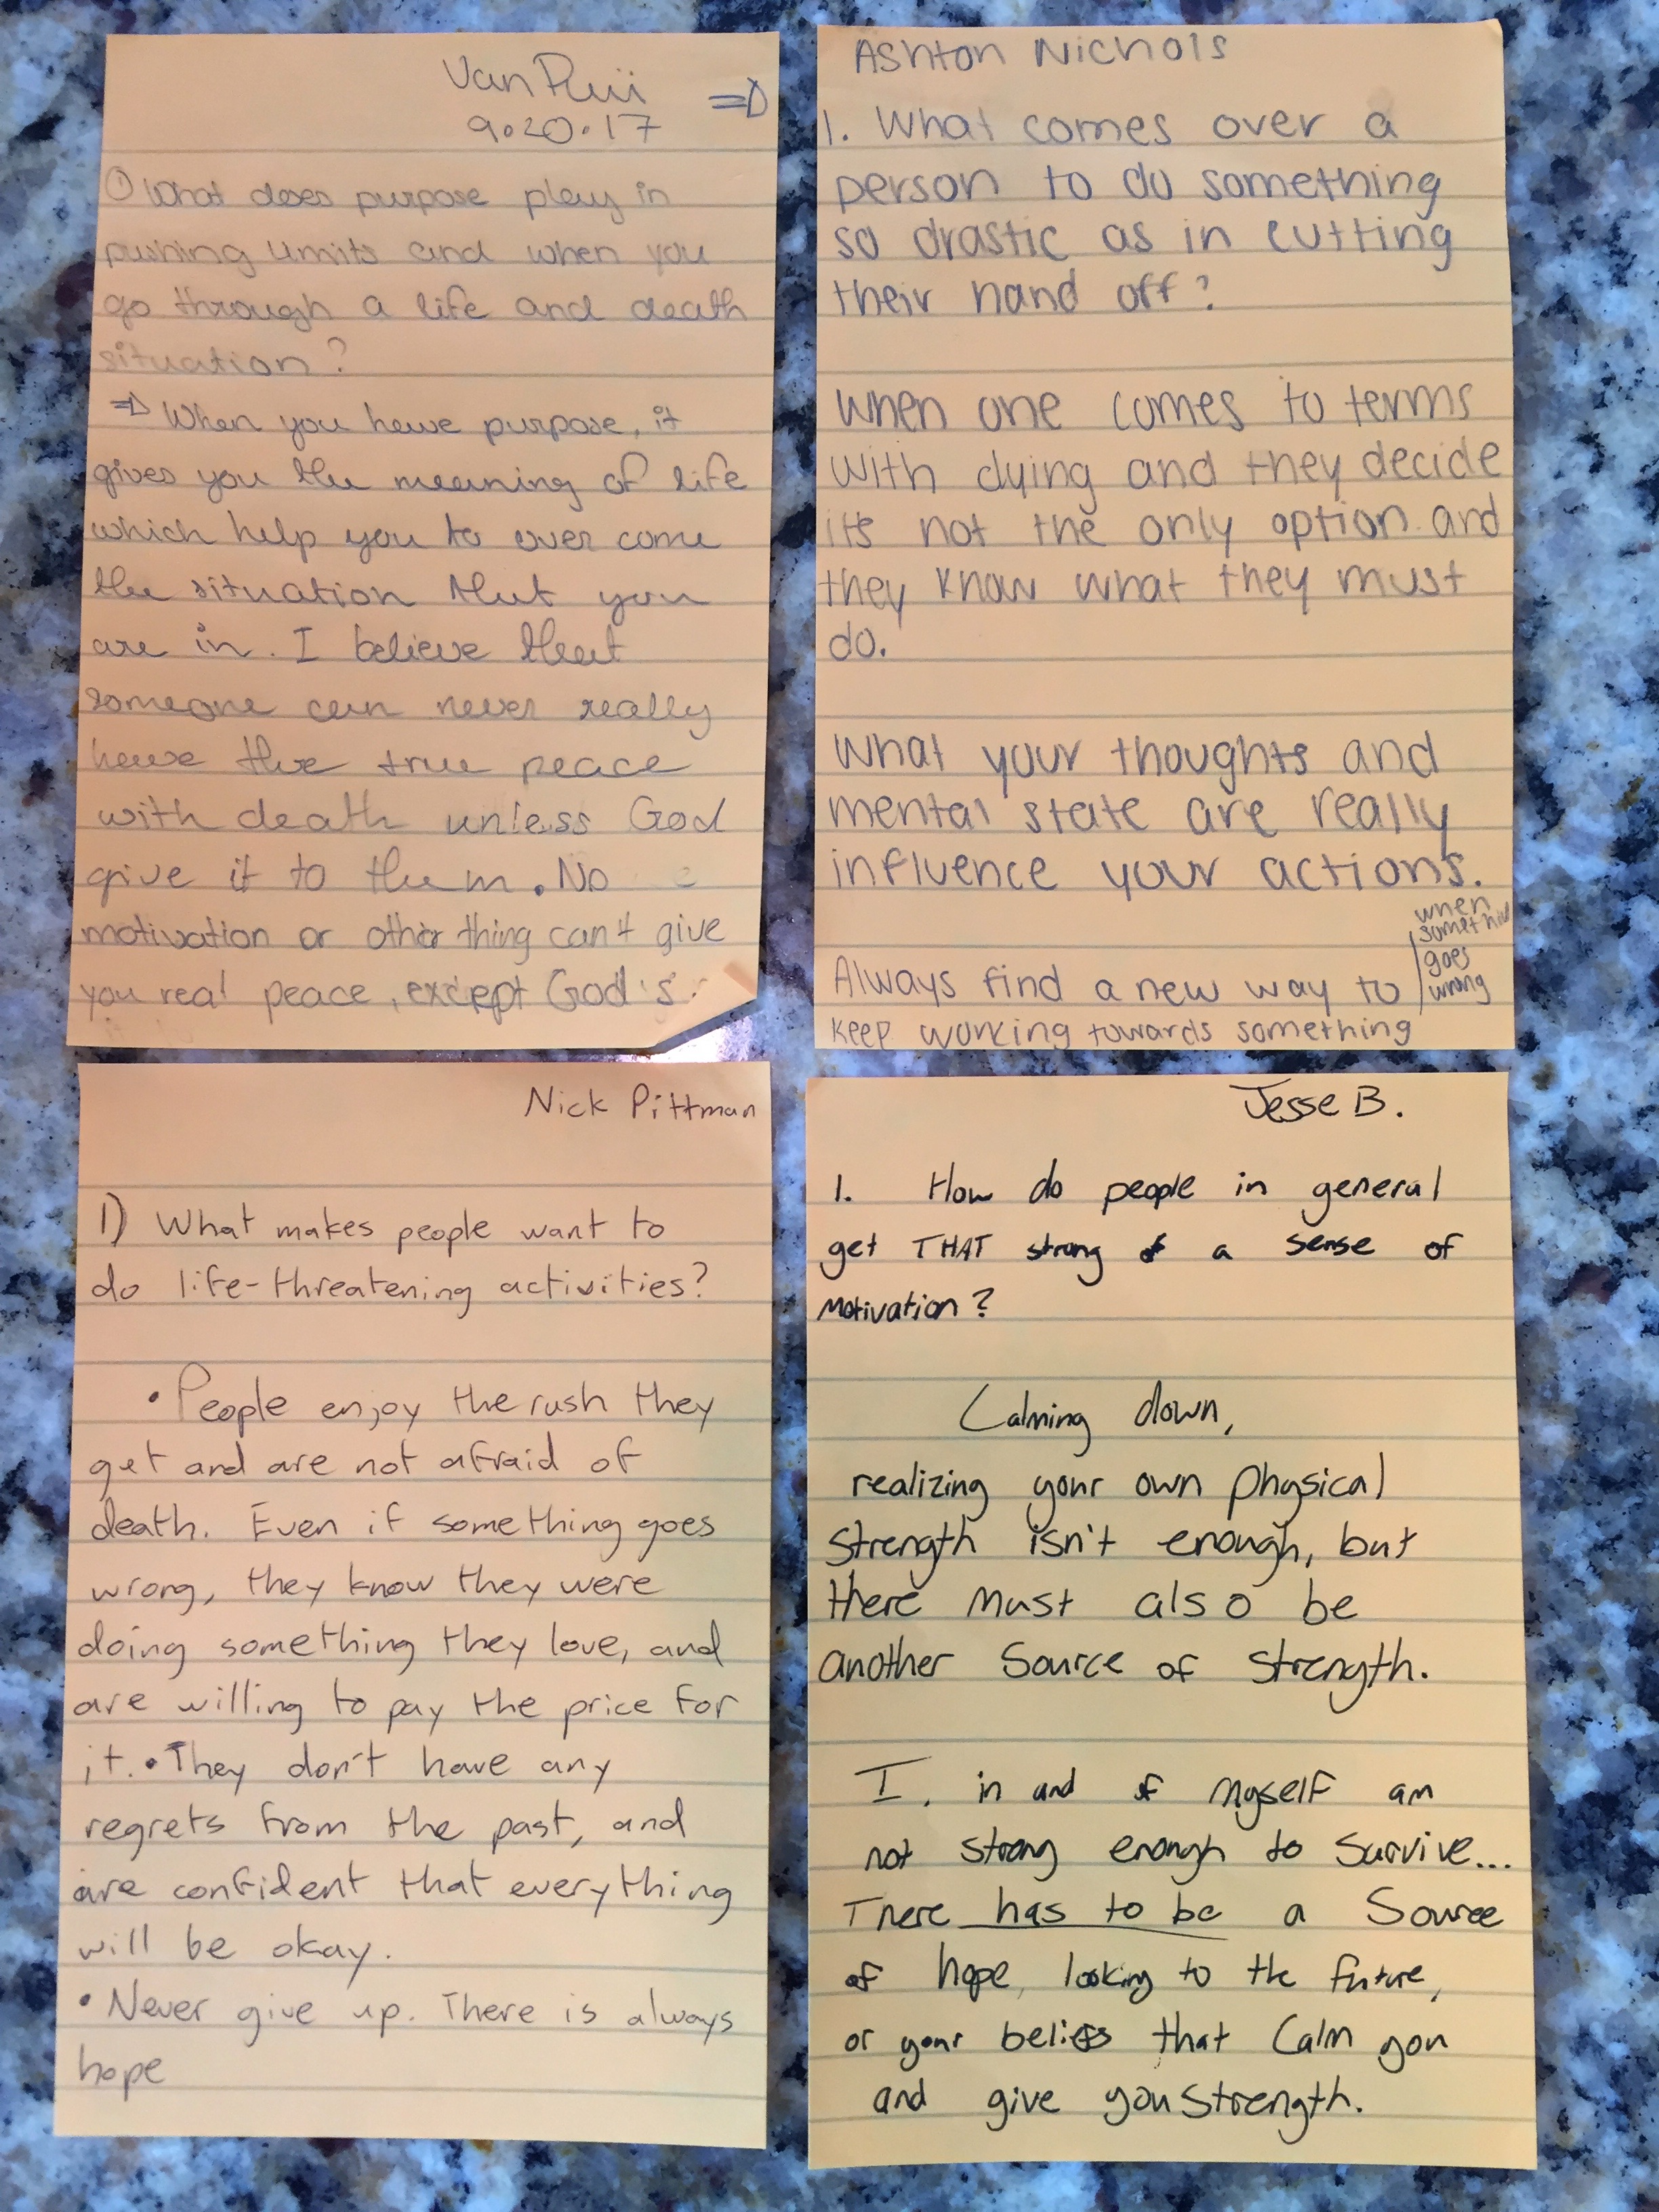 Van
9.20.17
① What does purpose play in
pushing limits and when you
go through a life and death
situation?
⇒ When you have purpose, it
gives you the meaning of life
which help you to over come
the situation that you
are in. I believe that
someone can never really
have the true peace
with death unless God
give it to them. No
motivation or other thing can't give
you real peace, except God's.
Ashton Nichols
1. What comes over a
person to do something
so drastic as in cutting
their hand off?
When one comes to terms
with dying and they decide
its not the only option and
they know what they must
do.
What your thoughts and
mental state are really
influence your actions.
Always find a new way to
keep working towards something
when
somethin
goes
wrong
Nick Pittman
1) What makes people want to
do life-threatening activities?
• People enjoy the rush they
get and are not afraid of
death. Even if something goes
wrong, they know they were
doing something they love, and
are willing to pay the price for
it. • They don't have any
regrets from the past, and
are confident that everything
will be okay.
• Never give up. There is always
hope
Jesse B.
1. How do people in general
get THAT strong of a sense of
motivation?
Calming down,
realizing your own physical
strength isn't enough, but
there must also be
another source of strength.
I, in and of myself am
not strong enough to survive...
There has to be a source
of hope, looking to the future,
or your beliefs that calm you
and give you strength.